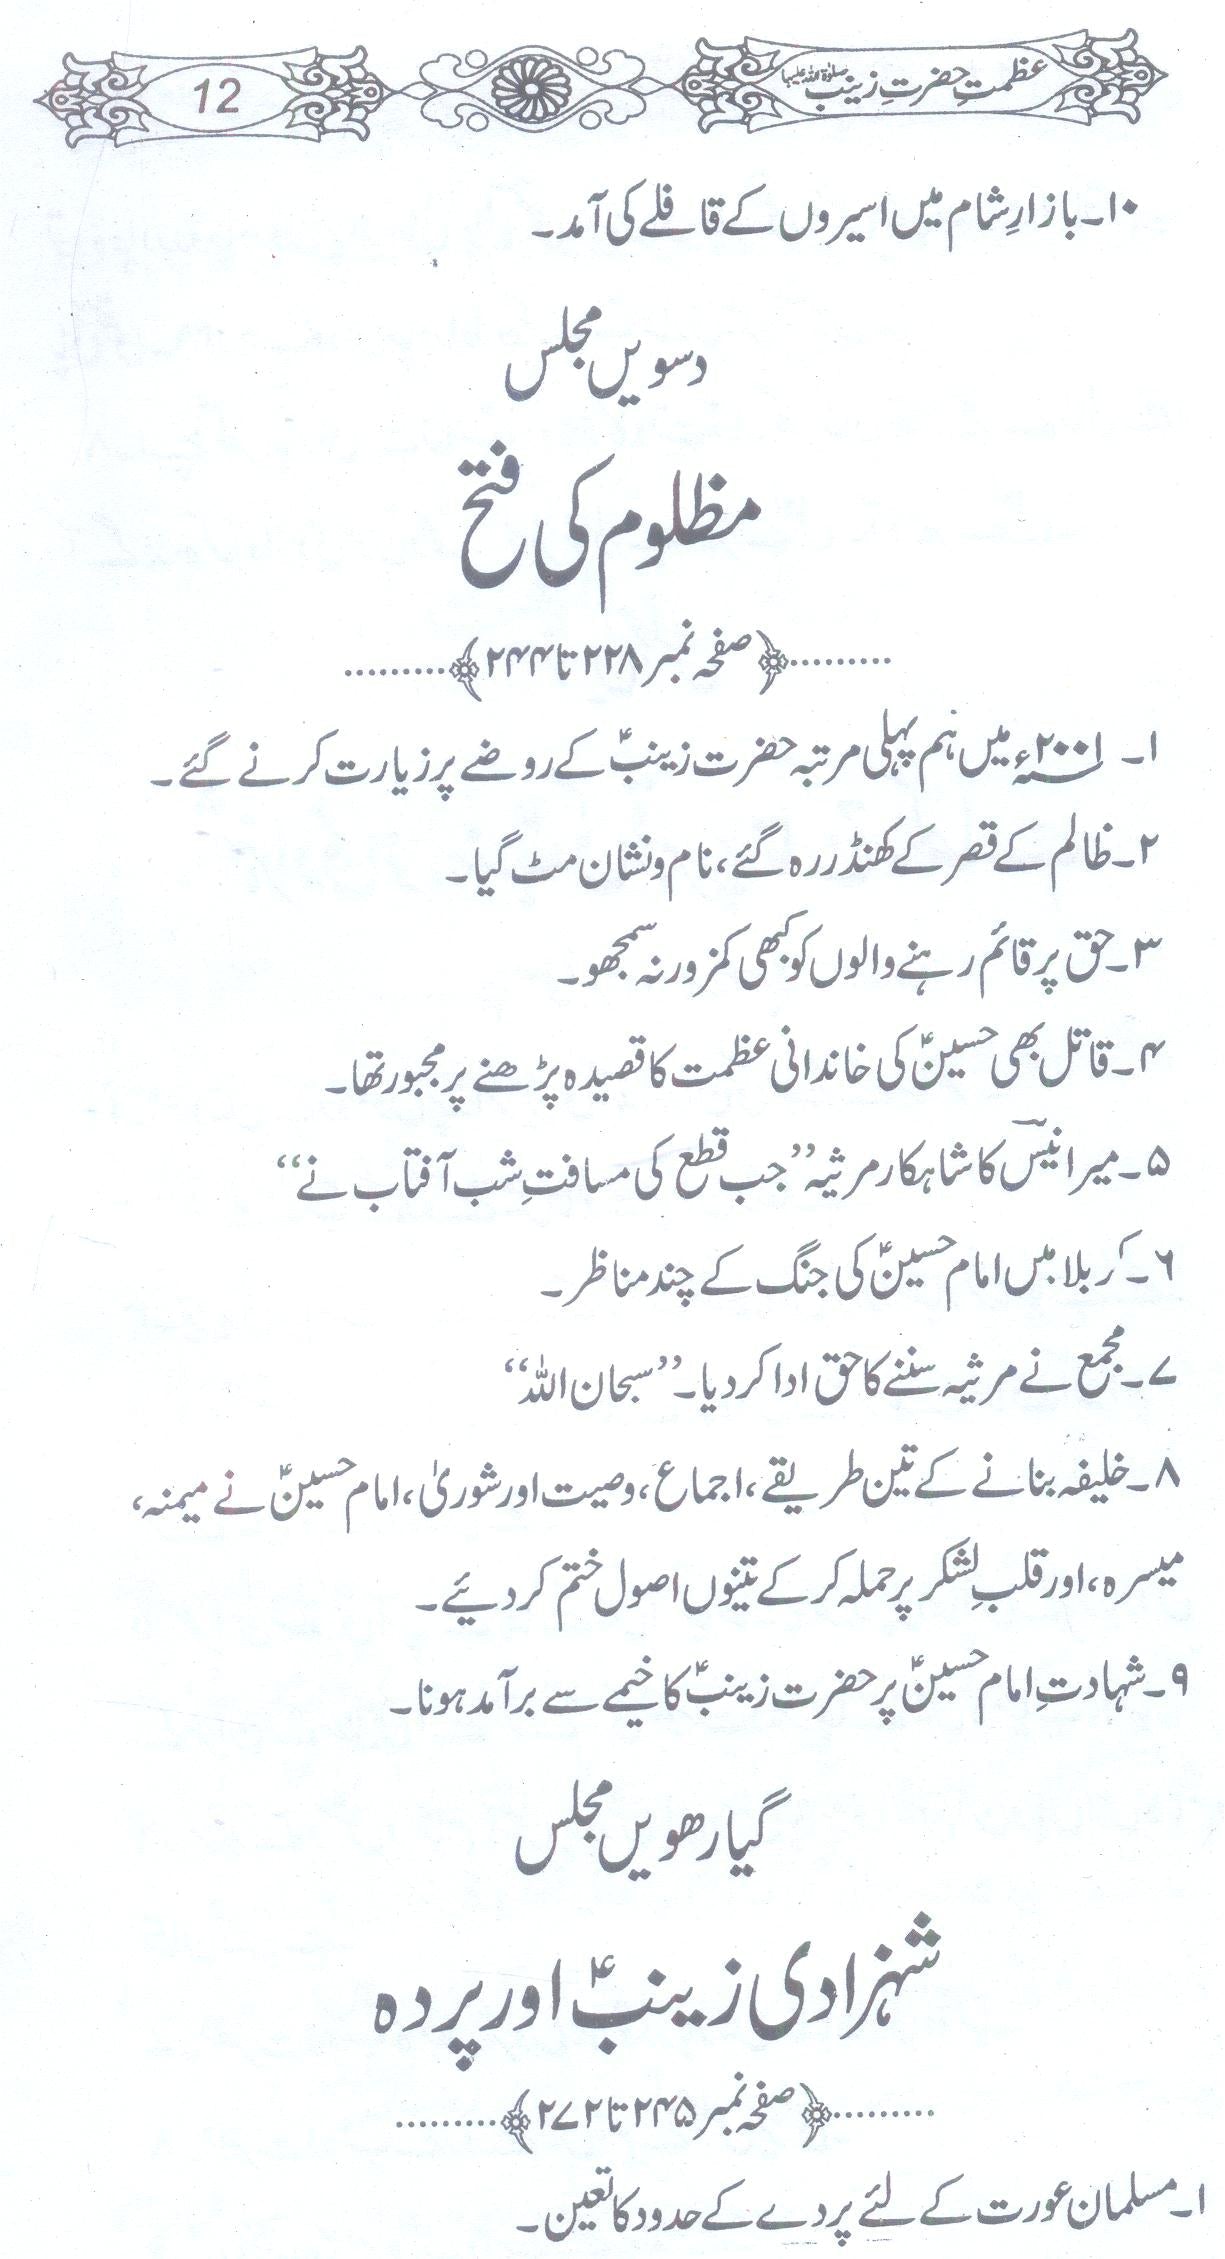 عظمتِ حضرتِ زینب صلوٰۃ اللہ علیہا
12
۱۰۔ بازارِ شام میں اسیروں کے قافلے کی آمد۔
دسویں مجلس
مظلوم کی فتح
﴿صفحہ نمبر ۲۲۸ تا ۲۴۴﴾
۱۔ ۲۰۰۱ء میں ہم پہلی مرتبہ حضرت زینبؑ کے روضے پر زیارت کرنے گئے۔
۲۔ ظالم کے قصر کے کھنڈر رہ گئے، نام و نشان مٹ گیا۔
۳۔ حق پر قائم رہنے والوں کو کبھی کمزور نہ سمجھو۔
۴۔ قاتل بھی حسینؑ کی خاندانی عظمت کا قصیدہ پڑھنے پر مجبور تھا۔
۵۔ میر انیسؔ کا شاہکار مرثیہ ’’جب قطع کی مسافتِ شب آفتاب نے‘‘
۶۔ کربلا میں امام حسینؑ کی جنگ کے چند مناظر۔
۷۔ مجمع نے مرثیہ سننے کا حق ادا کر دیا۔ ’’سبحان اللہ‘‘
۸۔ خلیفہ بنانے کے تین طریقے، اجماع، وصیت اور شوریٰ، امام حسینؑ نے میمنہ،
میسرہ، اور قلبِ لشکر پر حملہ کر کے تینوں اصول ختم کر دیئے۔
۹۔ شہادتِ امام حسینؑ پر حضرت زینبؑ کا خیمے سے برآمد ہونا۔
گیارھویں مجلس
شہزادی زینبؑ اور پردہ
﴿صفحہ نمبر ۲۴۵ تا ۲۷۲﴾
۱۔ مسلمان عورت کے لئے پردے کے حدود کا تعین۔